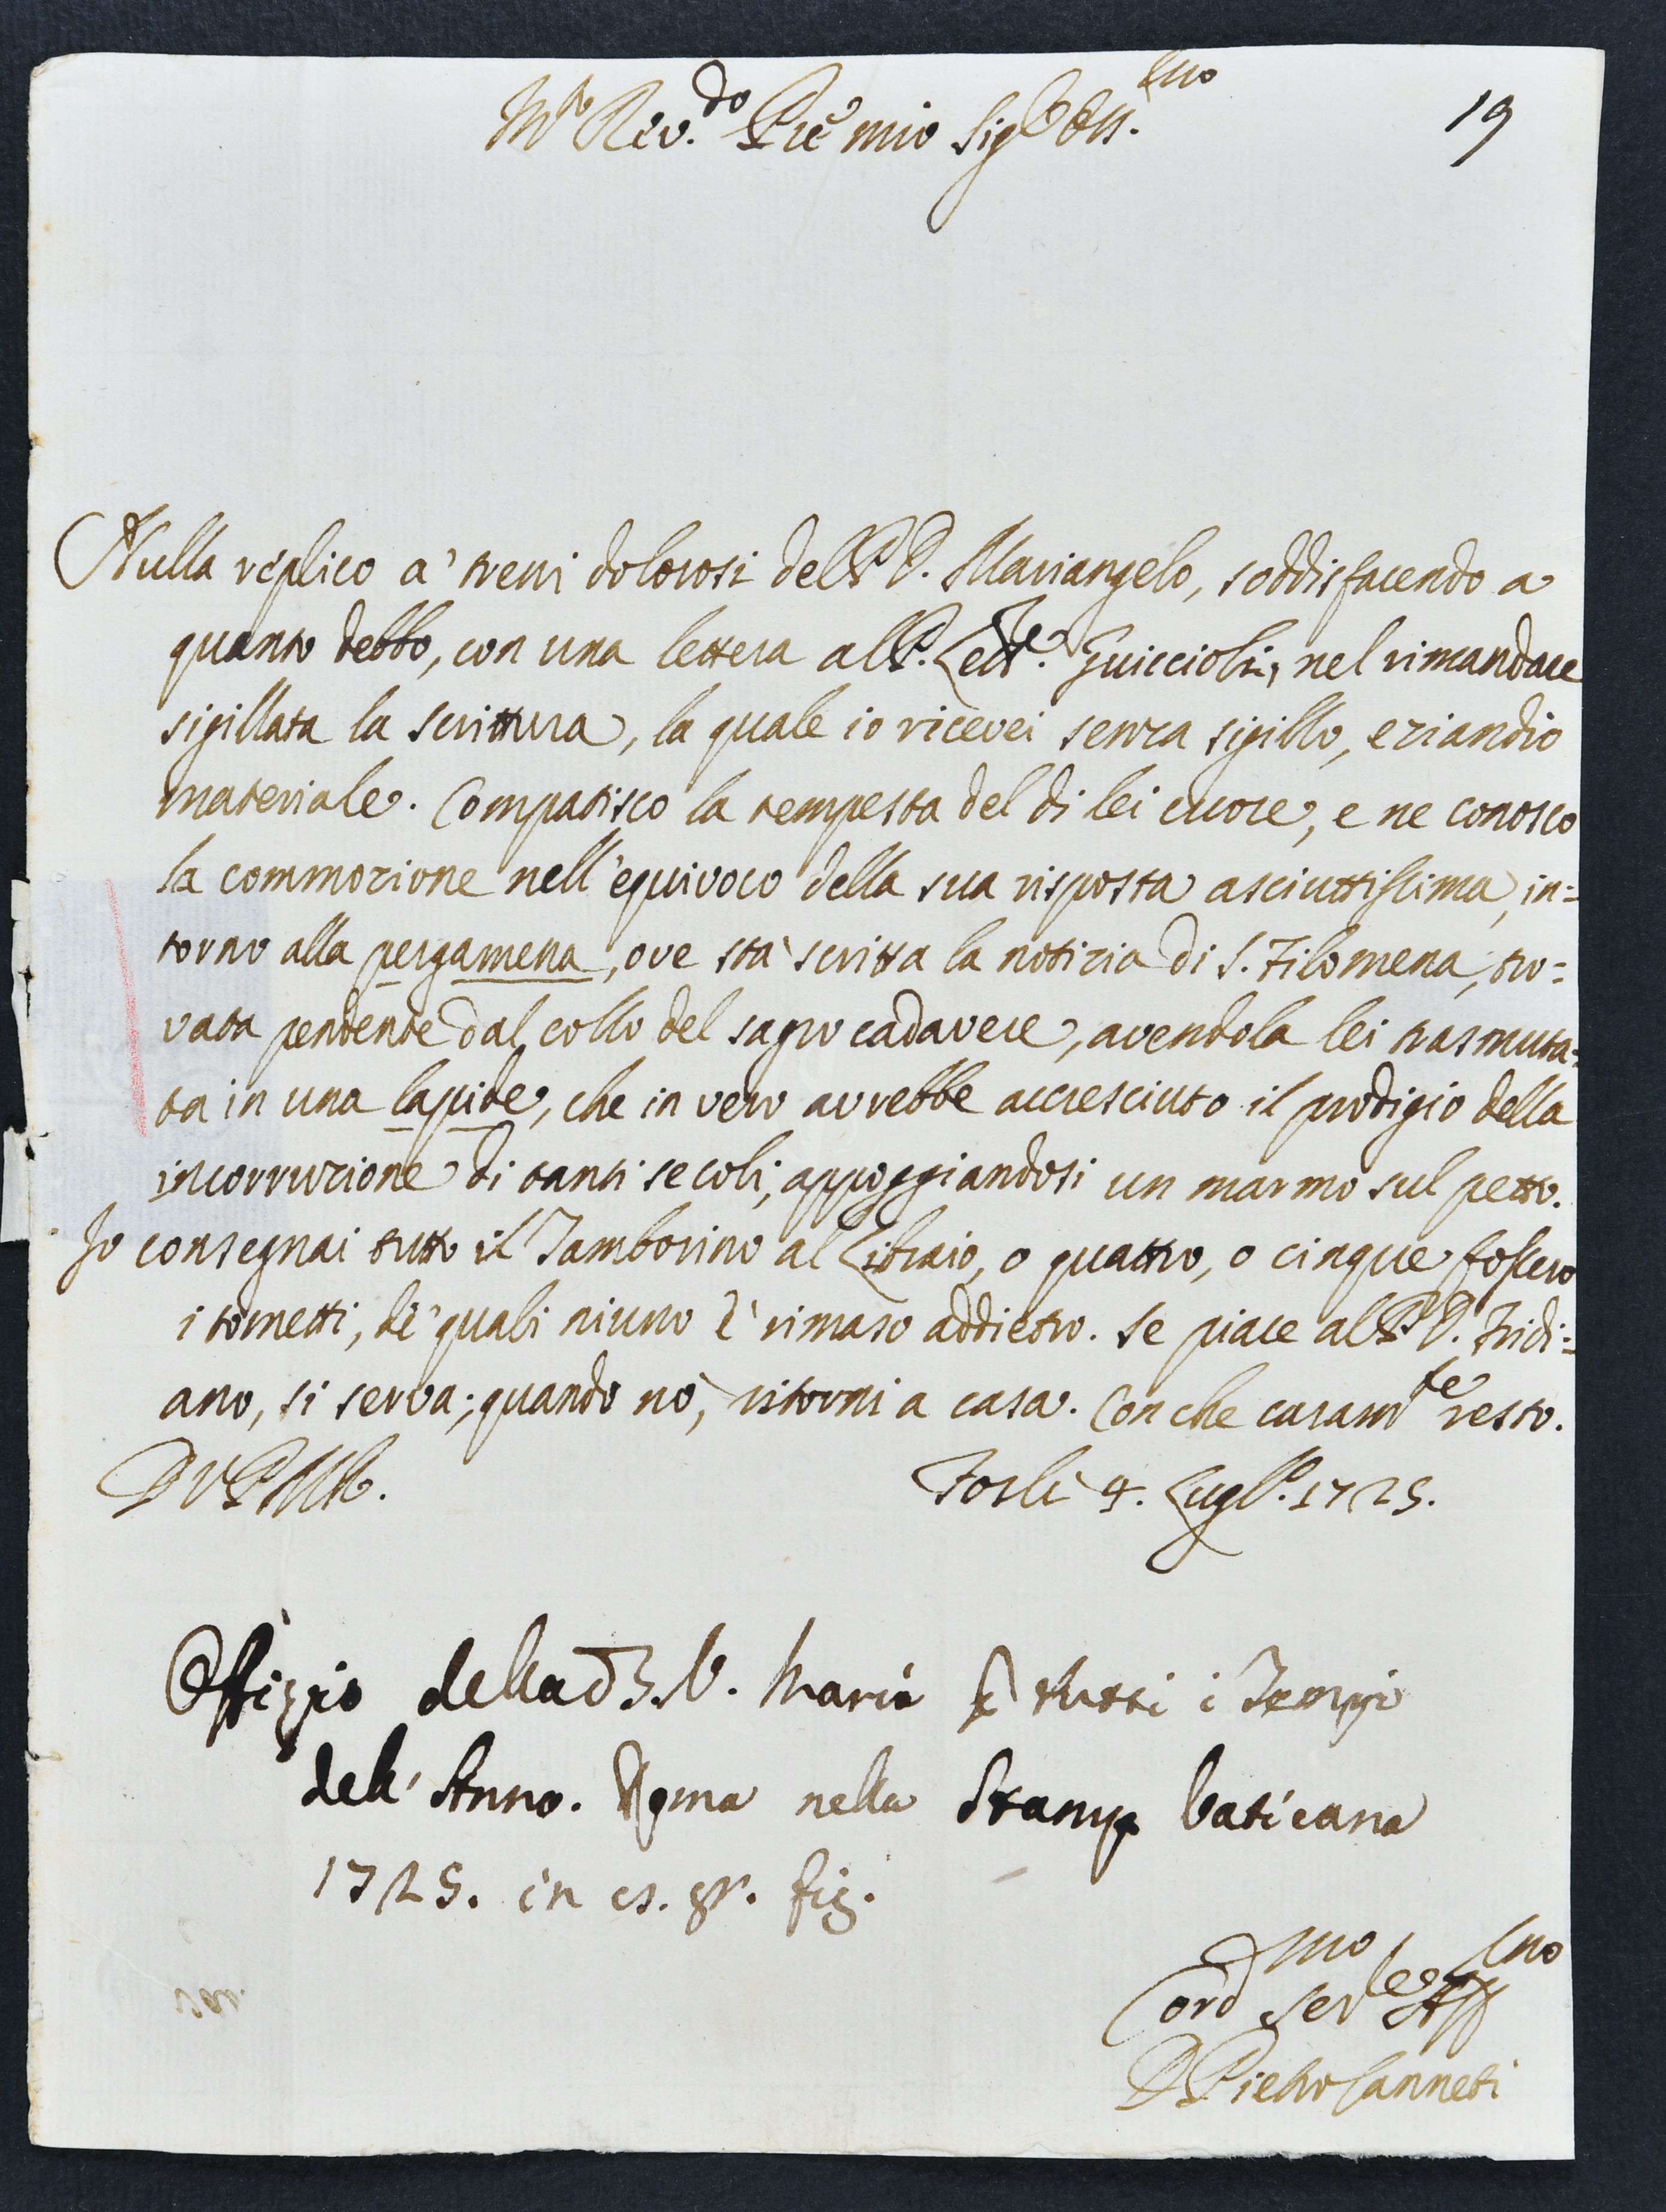 M.to Rev.do P.re mio Sig.re Oss.mo
19
Nulla replico a' treni dolorosi del P. D. Mariangelo, soddisfacendo a
quanto debbo, con una lettera al P. Lett.re Guiccioli, nel rimandare
sigillata la scrittura, la quale io ricevei senza sigillo, eziandio
materiale. Compatisco la tempesta del di lei cuore, e ne conosco
la commozione nell'equivoco della sua risposta asciuttissima, in=
torno alla pergamena, ove stà scritta la notizia di S. Filomena, tro=
vata pendente dal collo del sagro cadavere, avendola lei trasmuta=
ta in una lapide, che in vero avrebbe accresciuto il prodigio della
incorruzione di tanti secoli, appoggiandosi un marmo sul petto.
Io consegnai tutto il Tamborino al Libraio, o quattro, o cinque fossero
i tometti, de' quali niuno è rimaso addietro. Se piace al P. D. Fridi=
ano, si serva; quando nò, ritorni a casa. Con che caram.te resto.
D V P M R.
Forlì 4. Lugl.o 1725.
Offizio della B. V. Maria tutti i Tempi
dell'Anno. Roma nella Stamp Vaticana
1725. in gr. fig.
Cord.mo Ser.e Aff.mo
D Pietro Canneti